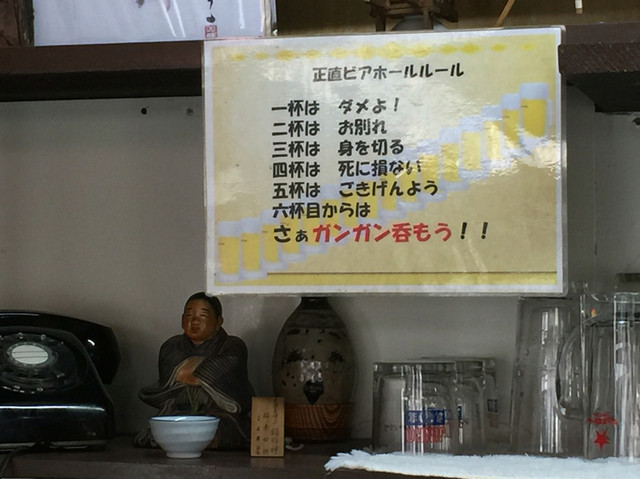 正直ビアホールルール
一杯は ダメよ！
二杯は お別れ
三杯は 身を切る
四杯は 死に損ない
五杯は ごきげんよう
六杯目からは
さぁガンガン呑もう！！